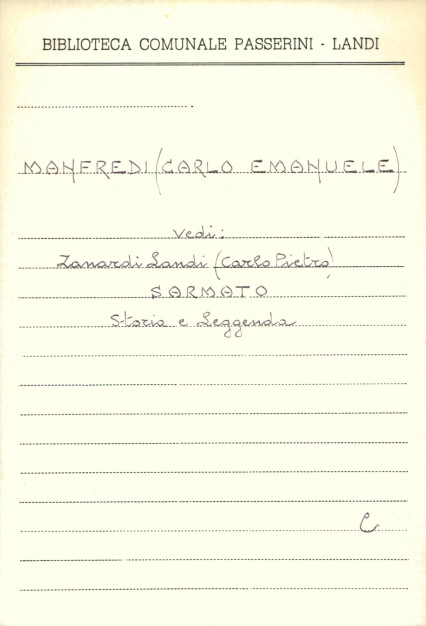 BIBLIOTECA COMUNALE PASSERINI - LANDI
MANFREDI (CARLO EMANUELE)
Vedi:
Zanardi Landi (Carlo Pietro)
SARMATO
Storia e Leggenda
C